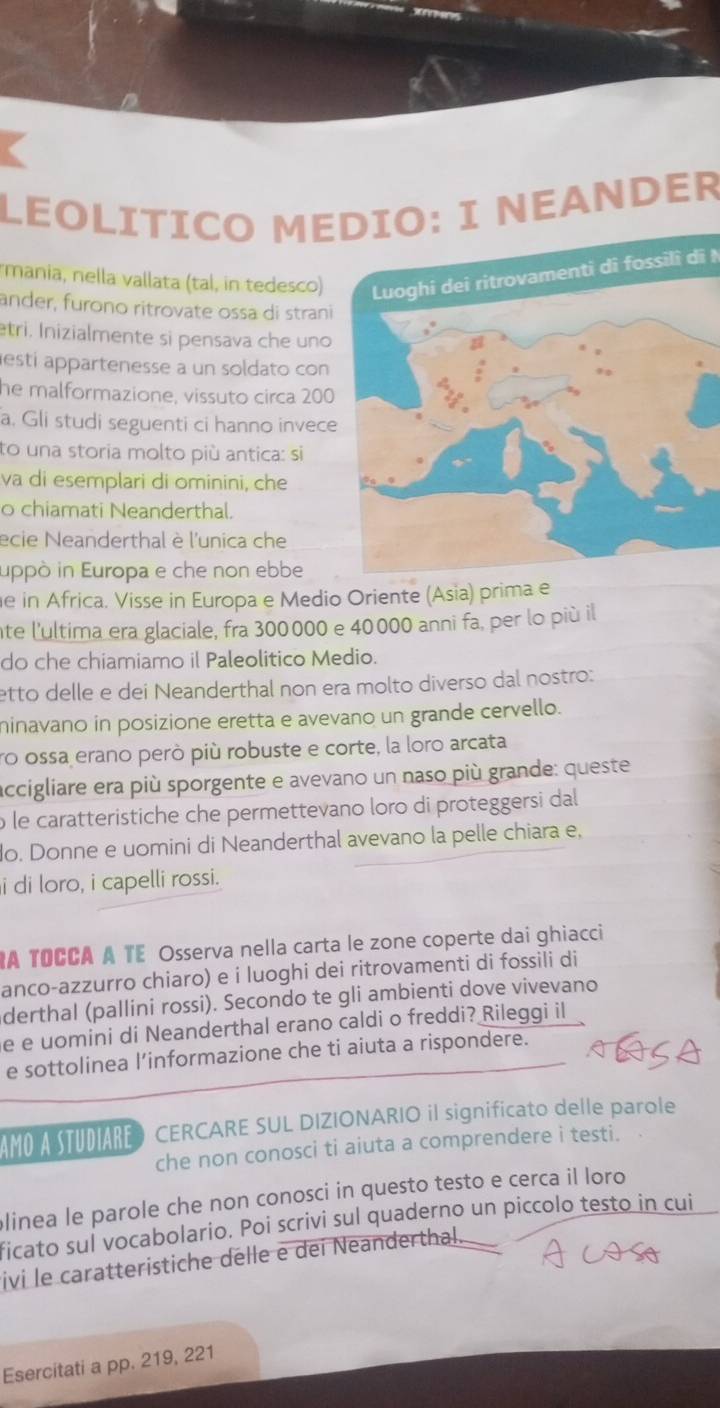 LEOLITICO MEDIO: I NEANDER
rmania, nella vallata (tal, in tedesco)
ander, furono ritrovate ossa di strani
etri. Inizialmente si pensava che uno
esti appartenesse a un soldato con
he malformazione, vissuto circa 200
a. Gli studi seguenti ci hanno invece
to una storia molto più antica: si
va di esemplari di ominini, che
o chiamati Neanderthal.
ecie Neanderthal è l'unica che
uppò in Europa e che non ebbe
e in Africa. Visse in Europa e Medio Oriente (Asia) prima e
nte l'ultima era glaciale, fra 300000 e 40000 anni fa, per lo più il
do che chiamiamo il Paleolitico Medio.
etto delle e dei Neanderthal non era molto diverso dal nostro:
ninavano in posizione eretta e avevano un grande cervello.
ro ossa erano però più robuste e corte, la loro arcata
accigliare era più sporgente e avevano un naso più grande: queste
o le caratteristiche che permettevano loro di proteggersi dal
do. Donne e uomini di Neanderthal avevano la pelle chiara e,
i di loro, i capelli rossi.
Luoghi dei ritrovamenti di fossili di N
RA TOCCA A TE Osserva nella carta le zone coperte dai ghiacci
anco-azzurro chiaro) e i luoghi dei ritrovamenti di fossili di
derthal (pallini rossi). Secondo te gli ambienti dove vivevano
e e uomini di Neanderthal erano caldi o freddi? Rileggi il
e sottolinea l'informazione che ti aiuta a rispondere.
A CASA
AMO A STUDIARE CERCARE SUL DIZIONARIO il significato delle parole
che non conosci ti aiuta a comprendere i testi.
olinea le parole che non conosci in questo testo e cerca il loro
ficato sul vocabolario. Poi scrivi sul quaderno un piccolo testo in cui
ivi le caratteristiche delle e dei Neanderthal.
A CASA
Esercitati a pp. 219, 221